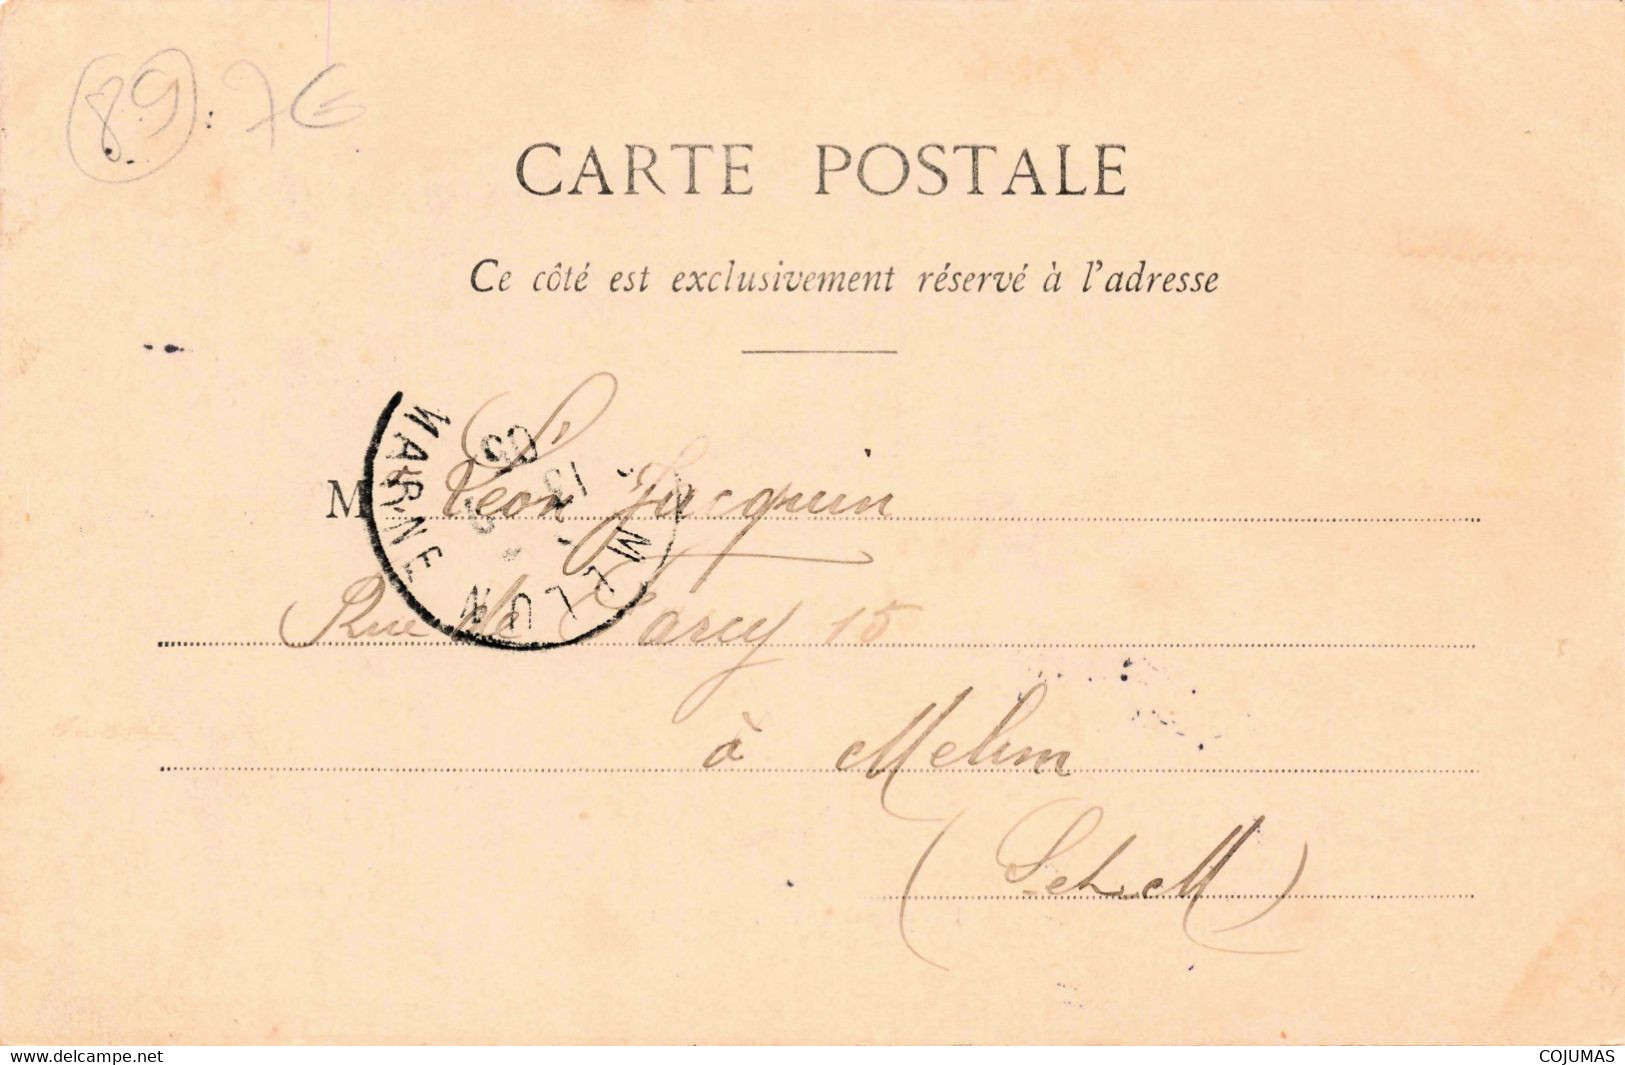 89 : 7€
CARTE POSTALE
Ce côté est exclusivement réservé à l'adresse
M Léon Jacquin
Rue de 15
à Melun
(S et M)
MELUN
MARNE
03
www.delcampe.net
COJUMAS